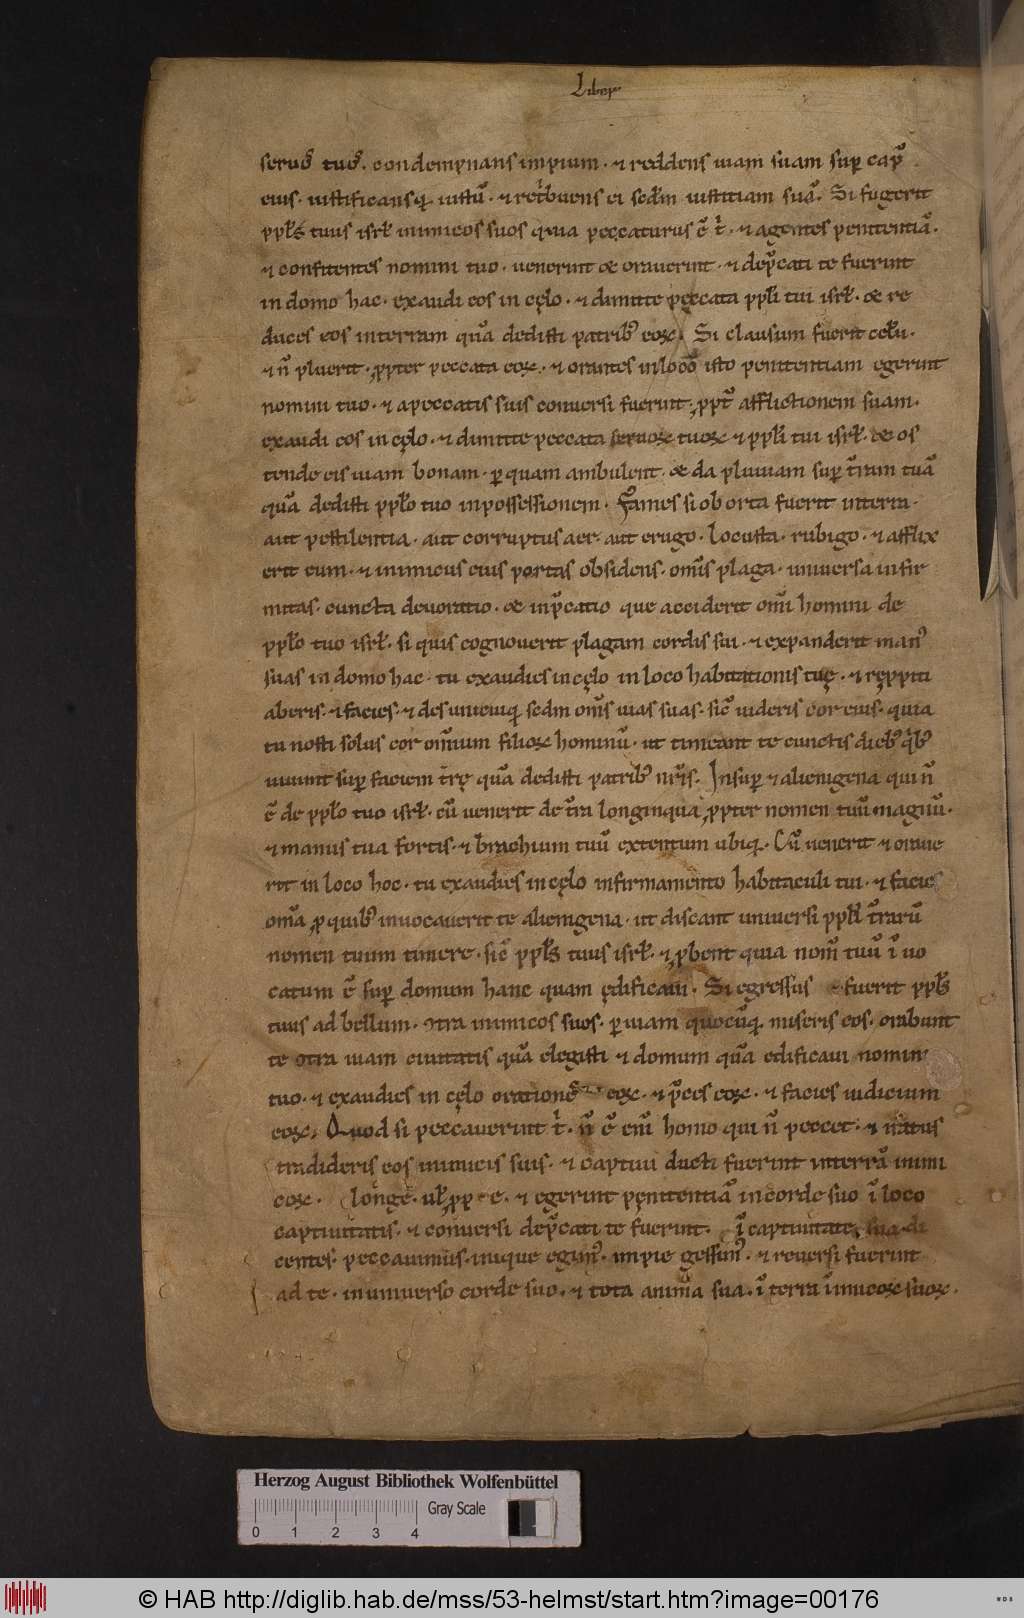 Liber
seruos tuos. condempnans impium. et reddens uiam suam sup capđ
eius. iustificansq; iustū. et retbuens ei scdm iustitiam suā. Si fugerit
ppl's tuus isrl inimicos suos quia peccaturus ē t'. et agentes penitentiā.
et confitentes nomini tuo. uenerint & orauerint. et depcati te fuerint
in domo hac. exaudi eos in cęlo. et dimitte peccata ppli tui isrl. & re
duces eos in terram quā dedisti patrib; eoꝝ. Si clausum fuerit celu.
et ñ pluerit. ꝓpter peccata eoꝝ. et orantes in loco isto penitentiam egerint
nomini tuo. et a peccatis suis conuersi fuerint ꝓpt afflictionem suam.
exaudi eos in cęlo. et dimitte peccata seruoꝝ tuoꝝ et ppli tui isrl. & os
tende eis uiam bonam. ꝑ quam ambulent. & da pluuiam sup tram tuā
quā dedisti pplo tuo in possessionem. Fames si oborta fuerit in terra.
aut pestilentia. aut corruptus aer. aut erugo. locusta. rubigo. et afflix
erit eum. et inimicus eius portas obsidens. om̄is plaga. uniuersa infir
mitas. cuncta deuoratio. & inpcatio que acciderit om̄i homini de
pplo tuo isrl. si quis cognouerit plagam cordis sui. et expanderit man'
suas in domo hac. tu exaudies in cęlo in loco habitationis tuę. et rępiti
aberis. et facies. et des unicuiq; scdm om̄s uias suas. sic uideris cor eius. quia
tu nosti solus cor omīum filioꝝ hominū. ut timeant te cunctis dieb; qb;
uiuunt sup faciem trę quā dedisti patrib; nris. Insup et alienigena qui ñ
ē de pplo tuo isrl. cū uenerit de tra longinqua ꝓpter nomen tuū magnū.
et manus tua fortis. et brachium tuū extentum ubiq;. Cū uenerit et oraue
rit in loco hoc. tu exaudies in cęlo in firmamento habitaculi tui. et facies
omā ꝓ quib; inuocauerit te alienigena. ut discant uniuersi ppli trarū
nomen tuum timere. sic ppls tuus isrl. et ꝓbent quia nom tuū ī uo
catum ē sup domum hanc quam ędificaui. Si egressus fuerit ppls
tuus ad bellum. ↄtra inimicos suos. ꝑ uiam quocūq; miseris eos. orabunt
te ↄtra uiam ciuitatis quā elegisti et domum quā edificaui nomini
tuo. et exaudies in cęlo orationē eoꝝ. et pces eoꝝ. et facies iudicium
eoꝝ. Quod si peccauerint t'. ñ ē em̄ homo qui ñ peccet. et iratus
tradideris eos inimicis suis. et captiui ducti fuerint in terrā inimi
coꝝ. longe. ul ꝓp e. et egerint pęnitentiā in corde suo ī loco
captiuitatis. et conuersi depcati te fuerint. ī captiuitate sua di
centes. peccauimus. inique egim'. impie gessim'. et reuersi fuerint
ad te. in uniuerso corde suo. et tota anima sua. ī terra inimicoꝝ suoꝝ.
Herzog August Bibliothek Wolfenbüttel
Gray Scale
0 1 2 3 4
© HAB http://diglib.hab.de/mss/53-helmst/start.htm?image=00176